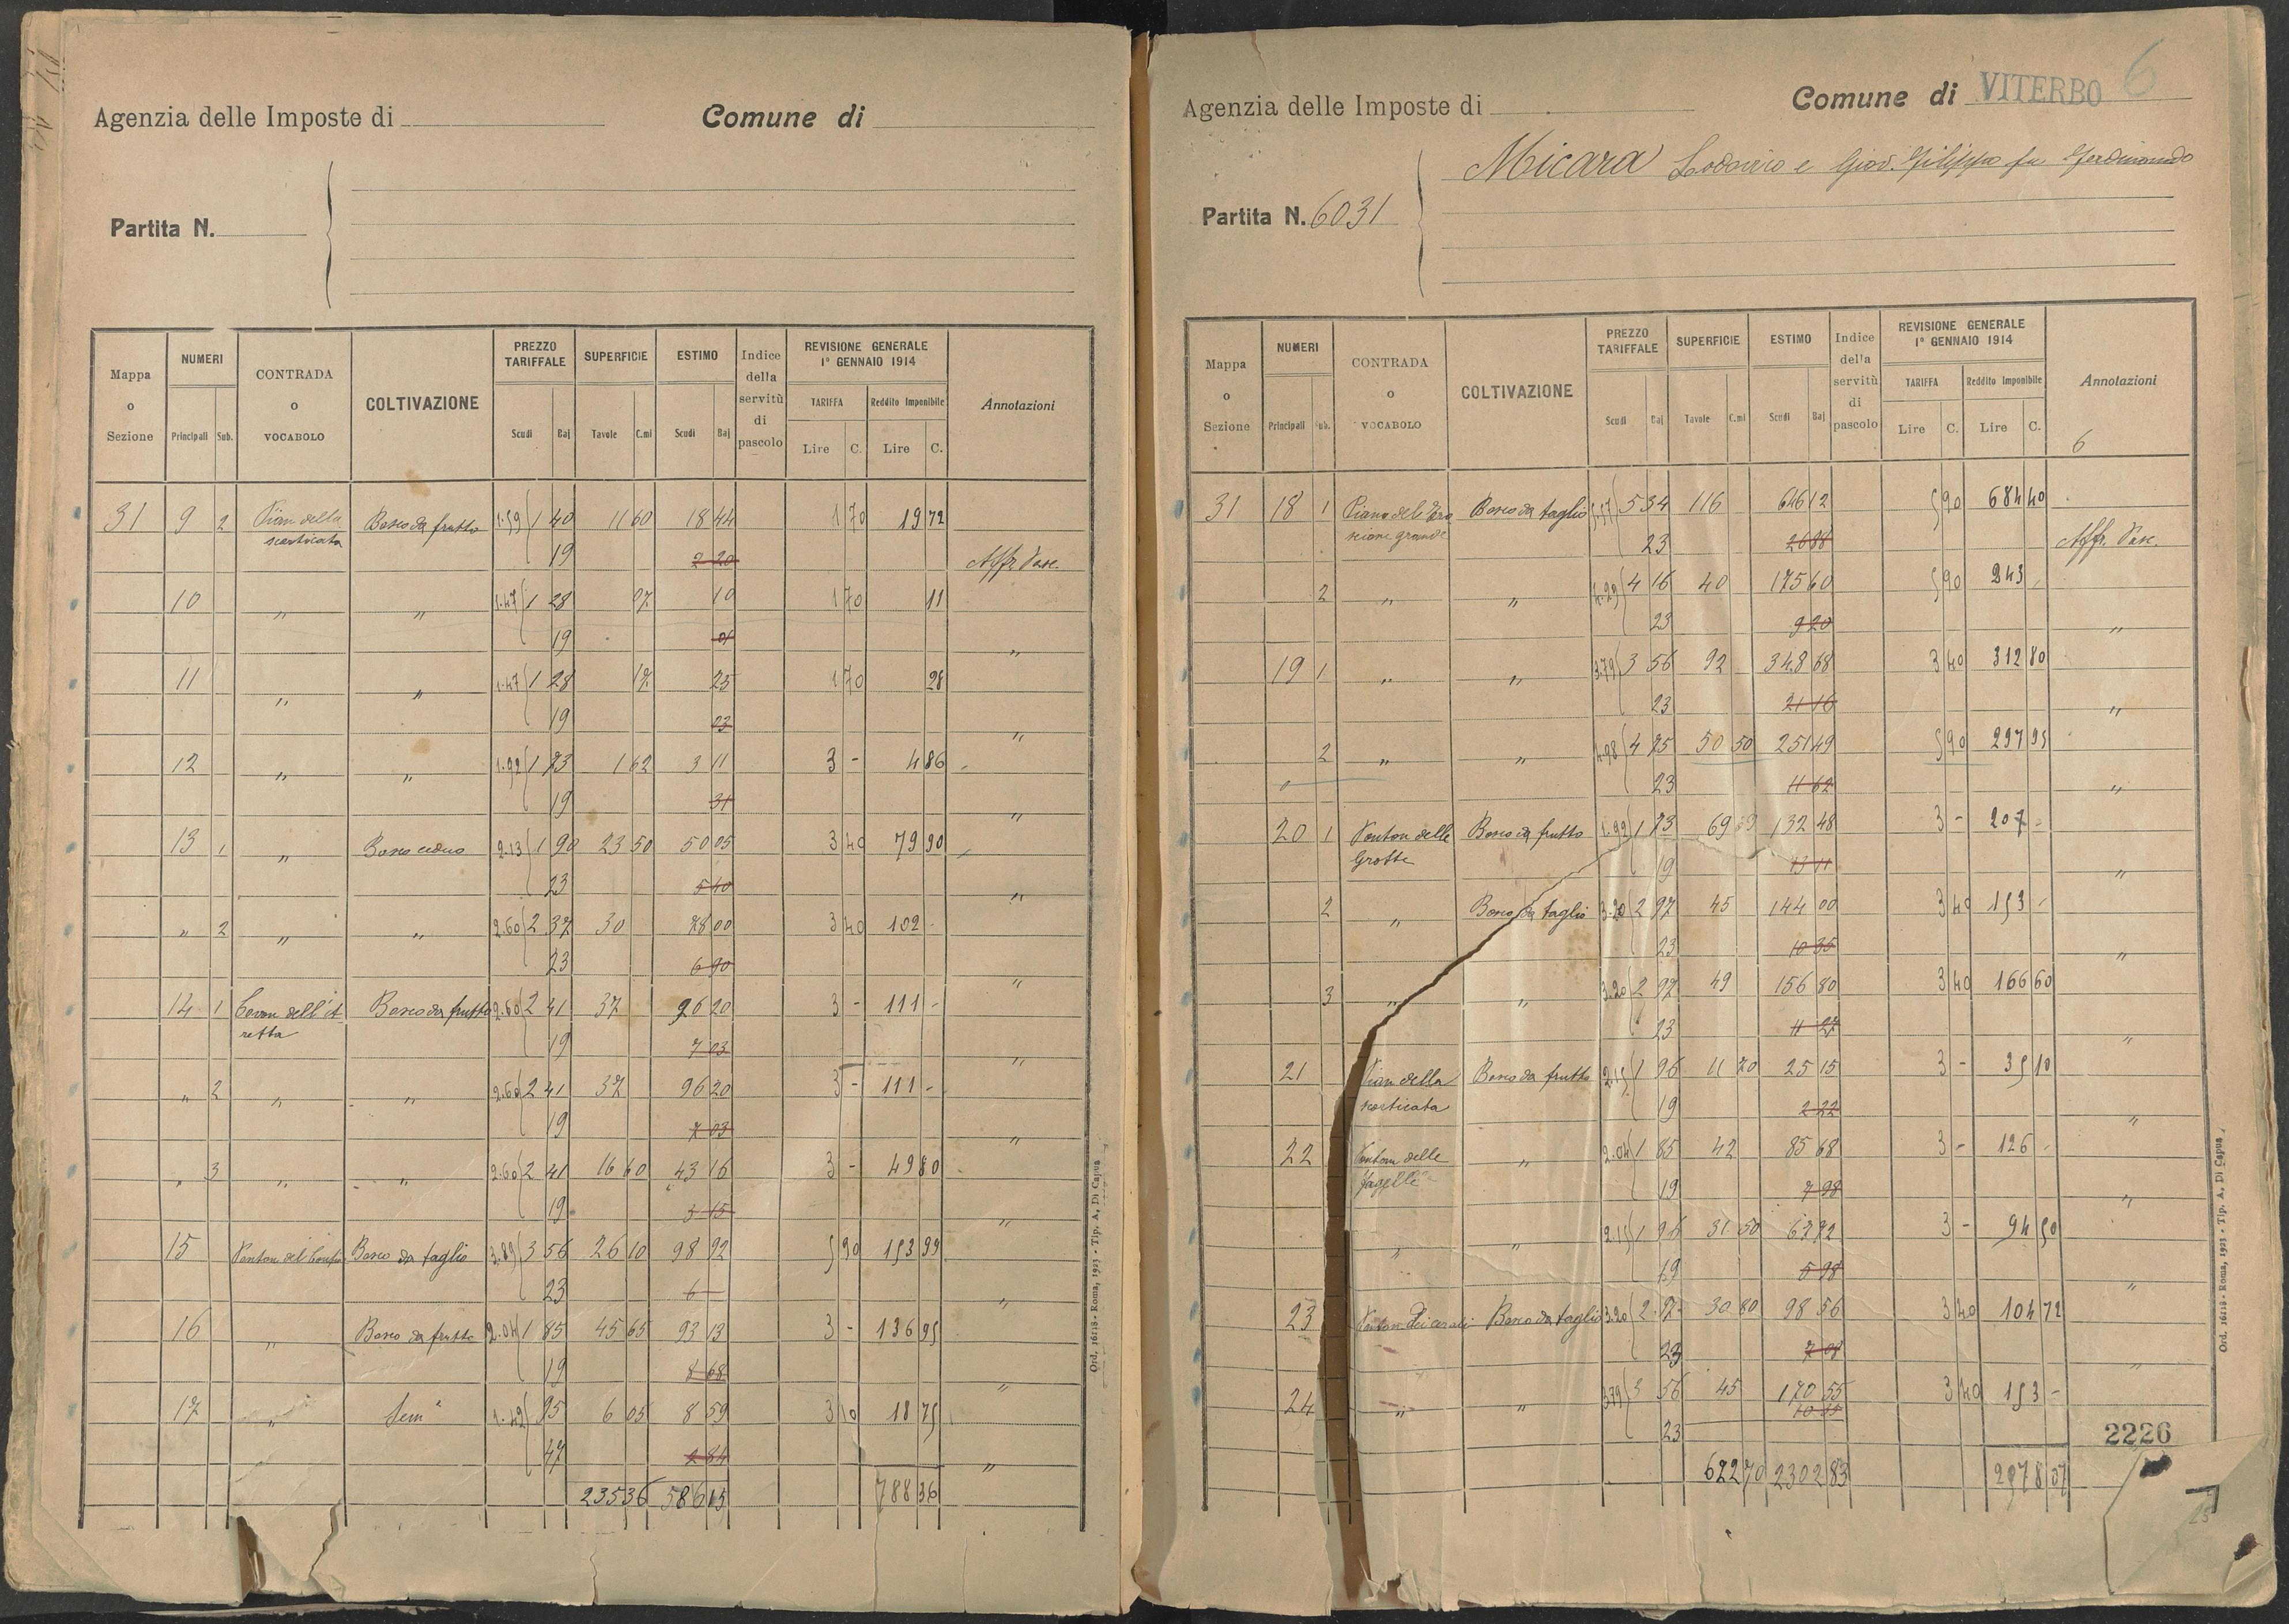 Agenzia delle Imposte di
Comune di
Partita N.
Mappa o Sezione
NUMERI
Principali Sub.
CONTRADA o VOCABOLO
COLTIVAZIONE
PREZZO TARIFFALE
Scudi Baj
SUPERFICIE
Tavole C.mi
ESTIMO
Scudi Baj
Indice della servitù di pascolo
REVISIONE GENERALE
1° GENNAIO 1914
TARIFFA
Lire C.
Reddito Imponibile
Lire C.
Annotazioni
31 9 2 Pian della Bosco da frutto 1.59 1 40 11 60 18 44 1 70 19 72
scorticata 19 2 20 Affr. Pasc.
10 „ „ 1.47 1 28 10 1 70 11
19 01 „
11 „ „ 1.47 1 28 17 25 1 70 28
19 03 „
12 „ „ 1.92 1 73 1 62 3 11 3 - 4 86
19 31 „
13 1 „ Bosco ceduo 2.13 1 90 23 50 50 05 3 40 79 90
23 5 40 „
„ 2 „ „ 2.60 2 37 30 78 00 3 40 102 -
23 6 90 „
14 1 Bosco da frutto 2.60 2 41 37 96 20 3 - 111 -
19 7 03 „
„ 2 „ „ 2.60 2 41 37 96 20 3 - 111 -
19 7 03 „
„ 3 „ „ 2.60 2 41 16 60 43 16 3 - 49 80
19 3 15 „
15 Ponton del Bosco da taglio 3.89 3 56 26 10 98 92 5 90 153 99
23 6 „
16 „ Bosco da frutto 2.04 1 85 45 65 93 13 3 - 136 95
19 8 68 „
17 „ Sem° 1.42 95 6 05 8 59 3 10 18 75
47 2 84 „
235 36 586 15 788 36
Ord. 16118 - Roma, 1923 - Tip. A. Di Capua
Agenzia delle Imposte di
Comune di VITERBO 6
Micara Lodovico e Giov. Filippo fu Ferdinando
Partita N. 6031
Mappa o Sezione
NUMERI
Principali Sub.
CONTRADA o VOCABOLO
COLTIVAZIONE
PREZZO TARIFFALE
Scudi Baj
SUPERFICIE
Tavole C.mi
ESTIMO
Scudi Baj
Indice della servitù di pascolo
REVISIONE GENERALE
1° GENNAIO 1914
TARIFFA
Lire C.
Reddito Imponibile
Lire C.
Annotazioni
6
31 18 1 Bosco da taglio 5.57 5 34 116 646 12 5 90 684 40
grande 23 26 88 Affr. Pasc.
2 „ „ 4.29 4 16 40 175 60 5 90 243
23 9 20 „
19 1 „ „ 3.79 3 56 92 348 68 3 40 312 80
23 21 16 „
2 „ „ 4.98 4 75 50 50 251 49 5 90 297 95
23 11 62 „
20 1 Ponton delle Bosco da frutto 1.92 1 73 69 132 48 3 - 207 -
Grotte 19 13 11 „
2 „ Bosco da taglio 3.20 2 97 45 144 00 3 40 153
23 10 35 „
3 „ „ 3.20 2 97 49 156 80 3 40 166 60
23 11 27 „
21 Pian della Bosco da frutto 2.15 1 96 11 70 25 15 3 - 35 10
scorticata 19 2 22 „
22 Ponton delle „ 2.04 1 85 42 85 68 3 - 126
19 7 98 „
„ „ 2.15 1 96 31 50 67 72 3 - 94 50
19 5 98 „
23 Ponton Bosco da taglio 3.20 2 97 30 80 98 56 3 40 104 72
23 7 08 „
24 „ „ 3.79 3 56 45 170 55 3 40 153 -
23 10 35
2226
622 70 2302 83 2478 07
25
Ord. 16118 - Roma, 1923 - Tip. A. Di Capua